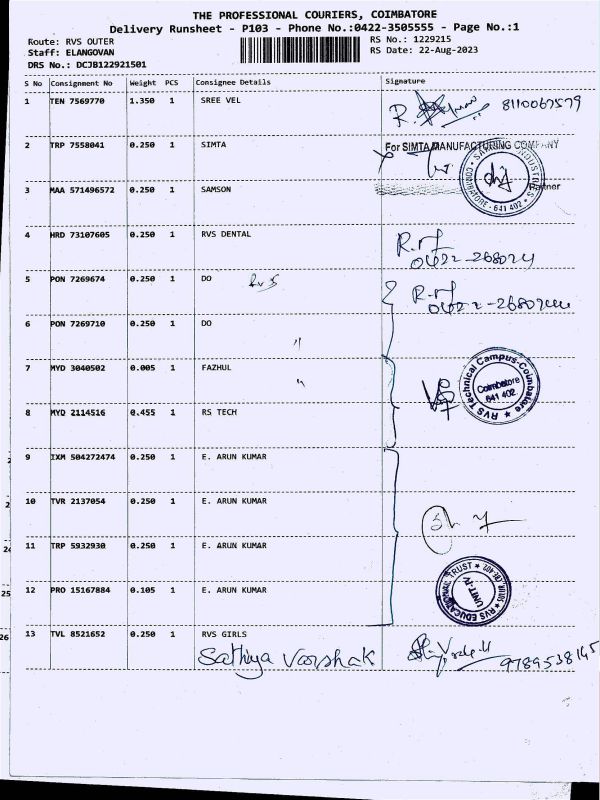 THE PROFESSIONAL COURIERS, COIMBATORE
Delivery Runsheet - P103 - Phone No.:0422-3505555 - Page No.:1
Route: RVS OUTER
RS No.: 1229215
Staff: ELANGOVAN
RS Date: 22-Aug-2023
DRS No.: DCJB122921501
S No Consignment No Weight PCS Consignee Details Signature
1 TEN 7569770 1.350 1 SREE VEL 8110067579
2 TRP 7558041 0.250 1 SIMTA For SIMTA MANUFACTURING COMPANY
Partner
3 MAA 571496572 0.250 1 SAMSON
COIMBATORE - 641 402
4 HRD 73107605 0.250 1 RVS DENTAL
5 PON 7269674 0.250 1 DO
6 PON 7269710 0.250 1 DO "
7 MYD 3040502 0.005 1 FAZHUL "
RVS Technical Campus-Coimbatore
Coimbatore
641 402
8 MYQ 2114516 0.455 1 RS TECH
9 IXM 504272474 0.250 1 E. ARUN KUMAR
10 TVR 2137054 0.250 1 E. ARUN KUMAR
11 TRP 5932930 0.250 1 E. ARUN KUMAR
12 PRO 15167884 0.105 1 E. ARUN KUMAR
RVS EDUCATIONAL TRUST
UNIT-IV
13 TVL 8521652 0.250 1 RVS GIRLS
Sathiya Varshak 9789538145
25
26